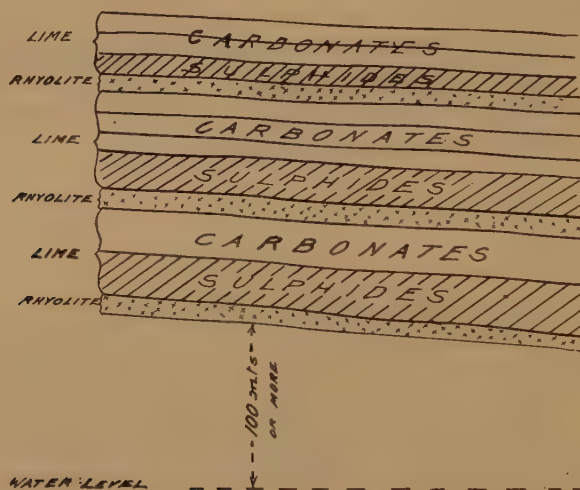 LIME CARBONATES
SULPHIDES
RHYOLITE
LIME CARBONATES
SULPHIDES
RHYOLITE
LIME CARBONATES
SULPHIDES
RHYOLITE
100 mts
OR MORE
WATER LEVEL